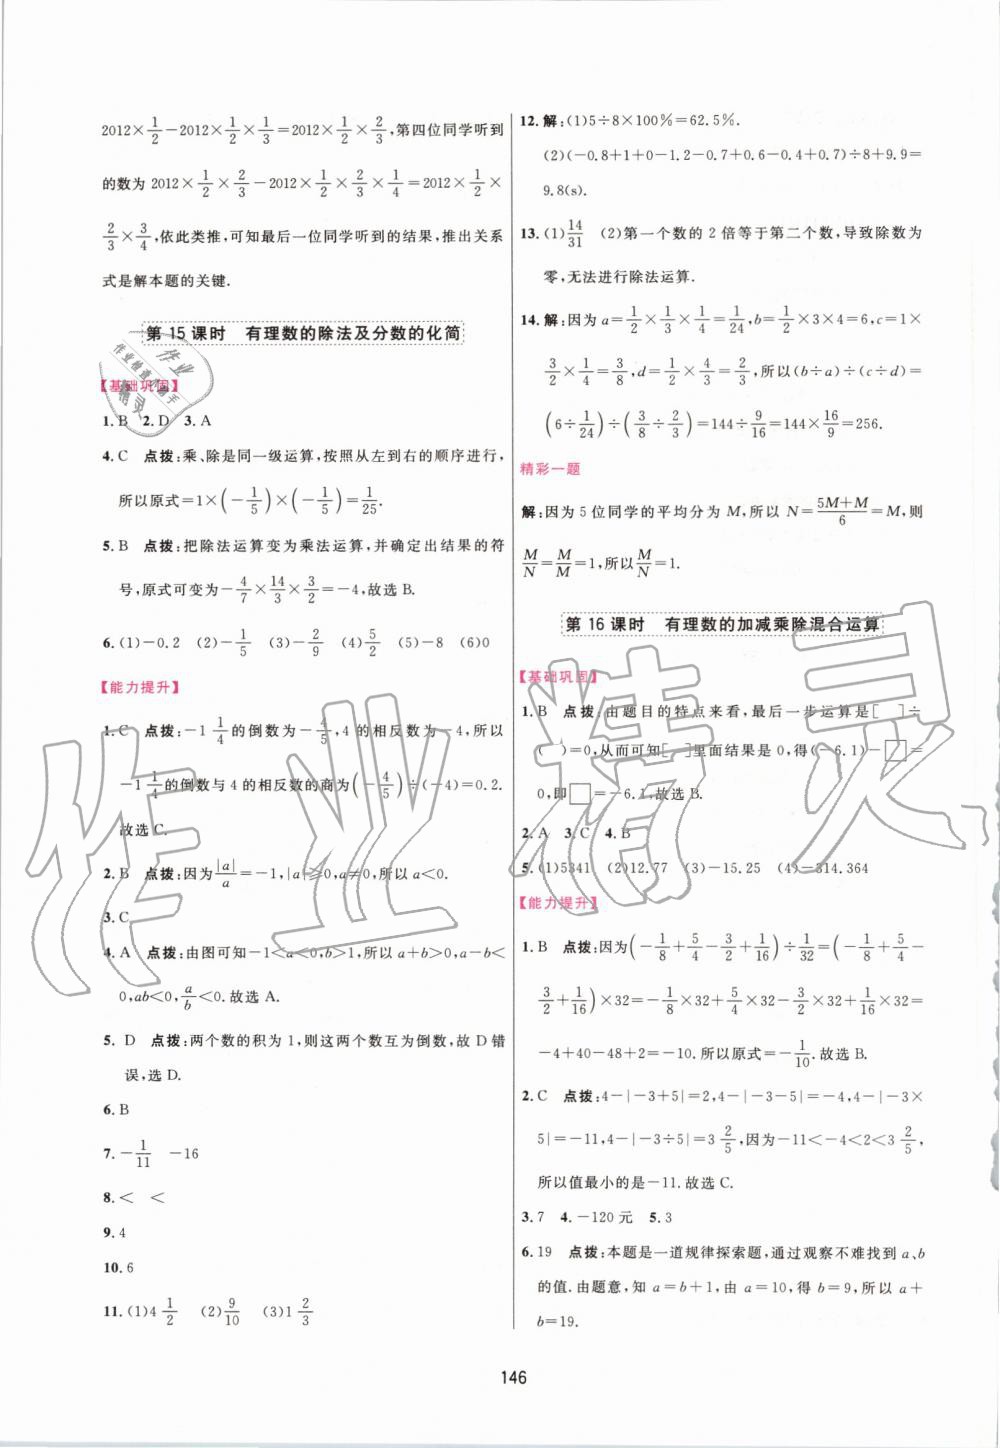 2012×1/2−2012×1/2×1/3=2012×1/2×2/3,第四位同学听到
的数为 2012×1/2×2/3−2012×1/2×2/3×1/4=2012×1/2×
2/3×3/4,依此类推,可知最后一位同学听到的结果,推出关系
式是解本题的关键.
第 15 课时 有理数的除法及分数的化简
【基础巩固】
1. B 2. D 3. A
4. C 点拨:乘、除是同一级运算,按照从左到右的顺序进行,
所以原式=1×(−1/5)×(−1/5)=1/25.
5. B 点拨:把除法运算变为乘法运算,并确定出结果的符
号,原式可变为−4/7×14/3×3/2=−4,故选 B.
6. (1)−0.2 (2)−1/5 (3)−2/9 (4)5/2 (5)−8 (6)0
【能力提升】
1. C 点拨:−1 1/4的倒数为−4/5,4 的相反数为−4,所以
−1 1/4的倒数与 4 的相反数的商为(−4/5)÷(−4)=0.2.
故选 C.
2. B 点拨:因为|a|/a=−1,|a|≥0,a≠0,所以 a<0.
3. C
4. A 点拨:由图可知−1<a<0,b>1,所以 a+b>0,a−b<
0,ab<0,a/b<0.故选 A.
5. D 点拨:两个数的积为 1,则这两个数互为倒数,故 D 错
误,选 D.
6. B
7. −1/11 −16
8. < <
9. 4
10. 6
11. (1)4 1/2 (2)9/10 (3)1 2/3
12. 解:(1)5÷8×100%=62.5%.
(2)(−0.8+1+0−1.2−0.7+0.6−0.4+0.7)÷8+9.9=
9.8(s).
13. (1)14/31 (2)第一个数的 2 倍等于第二个数,导致除数为
零,无法进行除法运算.
14. 解:因为 a=1/2×1/3×1/4=1/24,b=1/2×3×4=6,c=1×
3/2×1/4=3/8,d=1/2×4/3×1=2/3,所以(b÷a)÷(c÷d)=
(6÷1/24)÷(3/8÷2/3)=144÷9/16=144×16/9=256.
精彩一题
解:因为 5 位同学的平均分为 M,所以 N=5M+M/6=M,则
M/N=M/M=1,所以M/N=1.
第 16 课时 有理数的加减乘除混合运算
【基础巩固】
1. B 点拨:由题目的特点来看,最后一步运算是[ ]÷
( )=0,从而可知[ ]里面结果是 0,得(−6.1)−□=
0,即□=−6.1,故选 B.
2. A 3. C 4. B
5. (1)5341 (2)12.77 (3)−15.25 (4)−314.364
【能力提升】
1. B 点拨:因为(−1/8+5/4−3/2+1/16)÷1/32=(−1/8+5/4−
3/2+1/16)×32=−1/8×32+5/4×32−3/2×32+1/16×32=
−4+40−48+2=−10.所以原式=−1/10.故选 B.
2. C 点拨:4−|−3+5|=2,4−|−3−5|=−4,4−|−3×
5|=−11,4−|−3÷5|=3 2/5,因为−11<−4<2<3 2/5,
所以值最小的是−11.故选 C.
3. 7 4. −120 元 5. 3
6. 19 点拨:本题是一道规律探索题,通过观察不难找到 a、b
的值.由题意,知 a=b+1,由 a=10,得 b=9,所以 a+
b=19.
146
作业精灵
作业检查小助手
作业
精灵